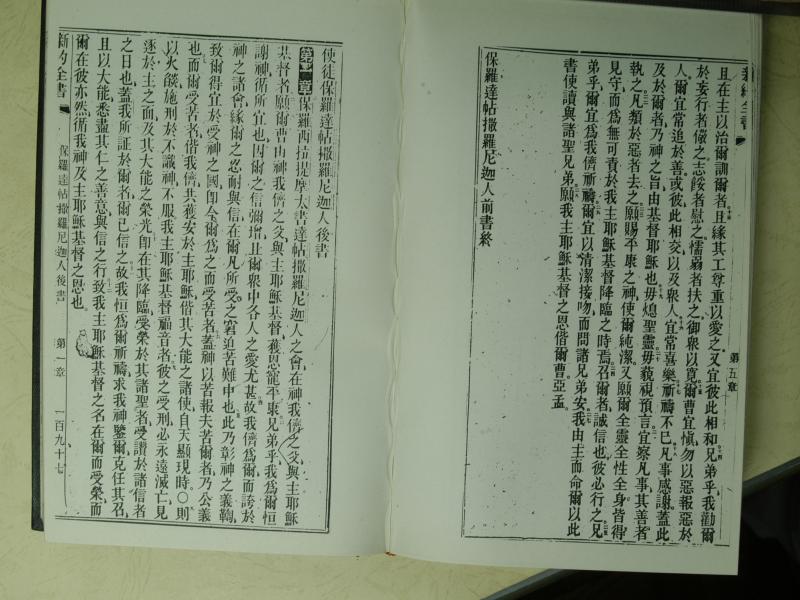 新約全書
第五章
且在主以治爾訓爾者且緣其工尊重以愛之又宜彼此相和兄弟乎我勸爾
於妄行者儆之志餒者慰之懦弱者扶之御眾以寬爾曹宜愼勿以惡報惡於
人爾宜常追於善或彼此相交以及眾人宜常喜樂祈禱不已凡事感謝蓋此
及於爾者乃神之旨由基督耶穌也毋熄聖靈毋藐視預言宜察凡事其善者
執之凡類於惡者去之願賜平康之神使爾純潔又願爾全靈全性全身皆得
見守而爲無可責於我主耶穌基督降臨之時焉召爾者誠信也彼必行之兄
弟乎爾宜爲我儕祈禱爾宜以清潔接吻而問諸兄弟安我由主而命爾以此
書使讀與諸聖兄弟願我主耶穌基督之恩偕爾曹亞孟
保羅達帖撒羅尼迦人前書終
使徒保羅達帖撒羅尼迦人後書
第一章保羅西拉提摩太書達帖撒羅尼迦人之會在神我儕之父與主耶穌
基督者願爾曹由神我儕之父與主耶穌基督獲恩寵平康兄弟乎我爲爾恒
謝神循所宜也因爾之信彌增且爾眾中各人之愛尤甚故我儕爲爾而誇於
神之諸會緣爾之忍耐與信在爾凡所受之窘迫苦難中也此乃彰神之義鞫
致爾得宜於受神之國卽今爾爲之而受苦者蓋神以苦報夫苦爾者乃公義
也而爾受苦者偕我儕共獲安於主耶穌偕其大能之諸使自天顯現時○則
以火燄施刑於不識神不服我主耶穌基督福音者彼之受刑必永遠滅亡見
逐於主之面及其大能之榮光卽在其降臨受榮於其諸聖者受讚於諸信者
之日也蓋我所証於爾者爾已信之故我恒爲爾祈禱求我神鑒爾克任其召
且以大能悉盡其仁之善意與信之行致我主耶穌基督之名在爾而受榮而
爾在彼亦然循我神及主耶穌基督之恩也
新約全書
保羅達帖撒羅尼迦人後書
第一章
一百九十七